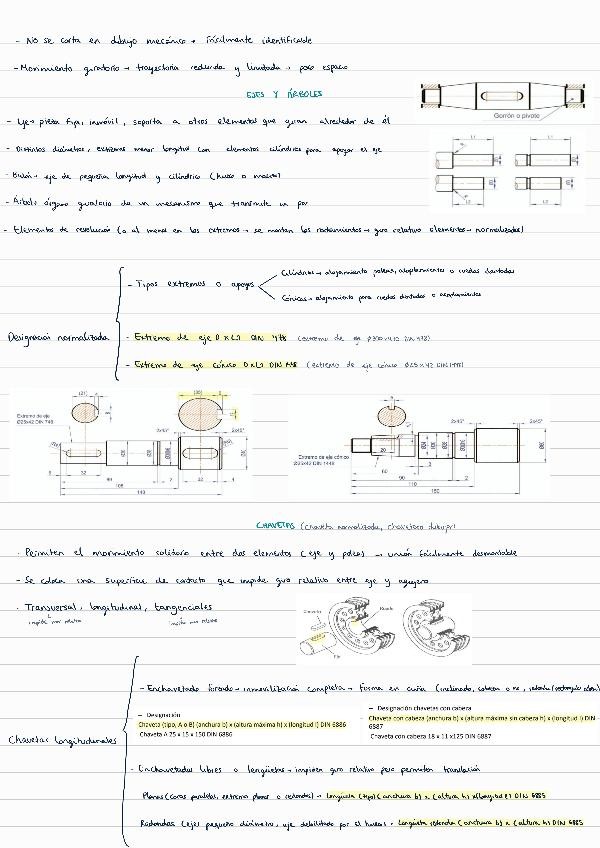 - No se corta en dibujo mecánico → fácilmente identificable
- Movimiento giratorio → trayectoria redonda y limitada → poco espacio
EJES Y ÁRBOLES
Gorrón o pivote
- Eje → pieza fija, inmóvil, soporta a otros elementos que giran alrededor de él
- Distintos diámetros, extremos menor longitud con elementos cilíndricos para apoyar el eje
- Bulón → eje de pequeña longitud y cilíndrico (hueco o macizo)
- Árbol → órgano giratorio de un mecanismo que transmite un par
- Elementos de revolución (o al menos en los extremos → se montan los rodamientos → giro relativo elementos → normalizados)
Designación normalizada
- Tipos extremos o apoyos
Cilíndricos → alojamiento poleas, acoplamientos o ruedas dentadas
Cónicos → alojamiento para ruedas dentadas o acoplamientos
- Extremo de eje D x L DIN 748
- Extremo de eje cónico D x L DIN 1448 (extremo de eje cónico Ø25 x 42 DIN 1448)
Extremo de eje
Ø25x42 DIN 748
2x45°
2x45°
32
32
Extremo de eje cónico
Ø25x42 DIN 1448
2x45°
2x45°
20
60
90
110
150
CHAVETAS (chaveta normalizada,
- Permiten el movimiento solidario entre dos elementos (eje y polea) → unión fácilmente desmontable
- Se coloca una superficie de contacto que impide giro relativo entre eje y agujero
- Transversal, longitudinal, tangenciales
Chaveta
Rueda
Eje
Chavetas longitudinales
- Enchavetado forzado → inmovilización completa → forma en cuña (inclinado, cabeza o no,
– Designación
Chaveta (tipo, A o B) (anchura b) x (altura máxima h) x (longitud l) DIN 6886
Chaveta A 25 x 15 x 150 DIN 6886
– Designación chavetas con cabeza
Chaveta con cabeza (anchura b) x (altura máxima sin cabeza h) x (longitud l) DIN
6887
Chaveta con cabeza 18 x 11 x125 DIN 6887
- Enchavetados libres o lengüetas → impiden giro relativo pero permiten translación
Planas (caras paralelas, extremos planos o redondos) → Lengüeta (tipo) (anchura b) x (altura h) x (longitud l) DIN 6885
Redondas (ejes pequeño diámetro, eje debilitado por el hueco) → Lengüeta redonda (anchura b) x (altura h) DIN 6885